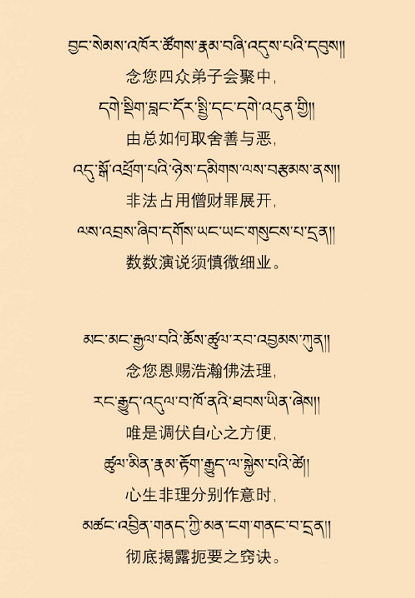 བྱང་སེམས་འཁོར་ཚོགས་རྣམ་བཞི་འདུས་པའི་དབུས༎
念您四众弟子会聚中，
དགེ་སྡིག་བླང་དོར་སྤྱི་དང་དགེ་འདུན་གྱི༎
由总如何取舍善与恶，
འདུ་སྒོ་འཕྲོག་པའི་ཉེས་དམིགས་ལས་བརྩམས་ནས༎
非法占用僧财罪展开，
ལས་འབྲས་ཞིབ་དགོས་ཡང་ཡང་གསུངས་པ་དྲན༎
数数演说须慎微细业。
མང་མང་རྒྱལ་བའི་ཆོས་ཚུལ་རབ་འབྱམས་ཀུན༎
念您恩赐浩瀚佛法理，
རང་རྒྱུད་འདུལ་བ་ཁོ་ནའི་ཐབས་ཡིན་ཞེས༎
唯是调伏自心之方便，
ཚུལ་མིན་རྣམ་རྟོག་རྒྱུད་ལ་སྐྱེས་པའི་ཚེ༎
心生非理分别作意时，
མཚང་འབྱིན་གནད་ཀྱི་མན་ངག་གནང་བ་དྲན༎
彻底揭露扼要之窍诀。